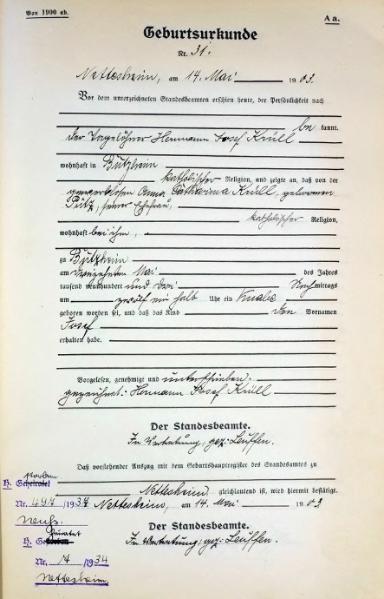 Von 1900 ab.
A a.
Geburtsurkunde
Nr. 31.
Nettesheim, am 14. Mai 1903.
Vor dem unterzeichneten Standesbeamten erschien heute, der Persönlichkeit nach
be kannt,
der Tagelöhner Hermann Josef Krüll
wohnhaft in Bützheim
katholischer Religion, und zeigte an, daß von der
Anna Catharina Krüll, geborenen
Pütz, seiner Ehefrau,
katholischer Religion,
wohnhaft bei ihm,
zu Bützheim
am Mai des Jahres
tausend neunhundert und drei Nachmittags
um zwölf ein halb Uhr ein Knabe
geboren worden sei, und daß das Kind den Vornamen
Josef
erhalten habe.
Vorgelesen, genehmigt und unterschrieben,
gezeichnet: Hermann Josef Krüll
Der Standesbeamte.
In Vertretung, gez: Leuffen.
Daß vorstehender Auszug mit dem Geburtshauptregister des Standesamtes zu
Nettesheim gleichlautend ist, wird hiermit bestätigt.
Nettesheim, am 14. Mai 1903
Der Standesbeamte.
In Vertretung, gez: Leuffen.
H.
Nr. 497/1934
Neuß.
H.
Nr. 14/1934
Nettesheim